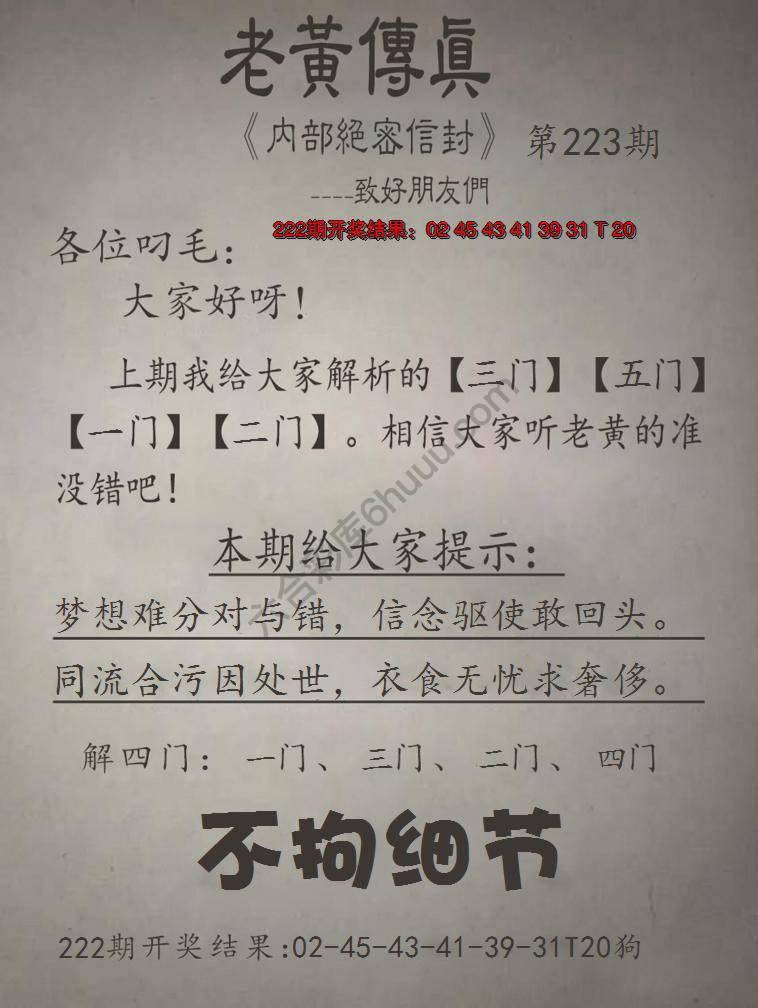 老黃傳眞
《内部絕密信封》 第223期
----致好朋友們
222期开奖结果：02 45 43 41 39 31 T 20
各位叼毛：
大家好呀！
上期我给大家解析的【三门】【五门】
【一门】【二门】。相信大家听老黄的准
没错吧！
本期给大家提示：
梦想难分对与错，信念驱使敢回头。
同流合污因处世，衣食无忧求奢侈。
解四门：一门、三门、二门、四门
不拘细节
222期开奖结果:02-45-43-41-39-31T20狗
六合彩库6huuu.com